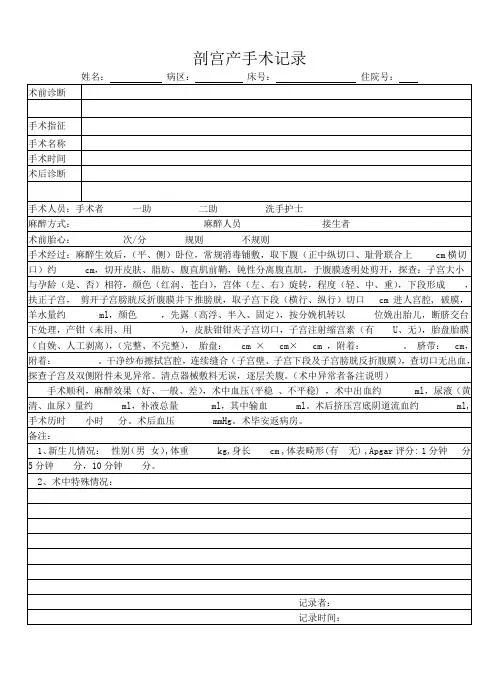 剖宫产手术记录
姓名: 病区: 床号: 住院号:
术前诊断
手术指征
手术名称
手术时间
术后诊断
手术人员: 手术者 一助 二助 洗手护士
麻醉方式: 麻醉人员 接生者
术前胎心: 次/分 规则 不规则
手术经过: 麻醉生效后,(平、侧)卧位,常规消毒铺敷,取下腹(正中纵切口、耻骨联合上 cm横切
口)约 cm,切开皮肤、脂肪、腹直肌前鞘,钝性分离腹直肌,于腹膜透明处剪开,探查:子宫大小
与孕龄(是、否)相符,颜色(红润、苍白),宫体(左、右)旋转,程度(轻、中、重),下段形成 ,
扶正子宫, 剪开子宫膀胱反折腹膜并下推膀胱,取子宫下段(横行、纵行)切口 cm 进入宫腔,破膜,
羊水量约 ml,颜色 ,先露(高浮、半入、固定),按分娩机转以 位娩出胎儿,断脐交台
下处理,产钳(未用、用 ),皮肤钳钳夹子宫切口,子宫注射缩宫素(有 U、无),胎盘胎膜
(自娩、人工剥离),(完整、不完整), 胎盘: cm × cm× cm ,附着: 。 脐带: cm,
附着: 。干净纱布擦拭宫腔,连续缝合(子宫壁、子宫下段及子宫膀胱反折腹膜),查切口无出血,
探查子宫及双侧附件未见异常。清点器械敷料无误,逐层关腹。(术中异常者备注说明)
手术顺利,麻醉效果(好、一般、差),术中血压(平稳 、不平稳) ,术中出血约 ml,尿液(黄
清、血尿)量约 ml,补液总量 ml,其中输血 ml。术后挤压宫底阴道流血约 ml,
手术历时 小时 分。术后血压 mmHg。术毕安返病房。
备注:
1、新生儿情况: 性别(男 女),体重 kg,身长 cm ,体表畸形(有 无) ,Apgar 评分: 1分钟 分
5分钟 分,10分钟 分。
2、术中特殊情况:
记录者:
记录时间: